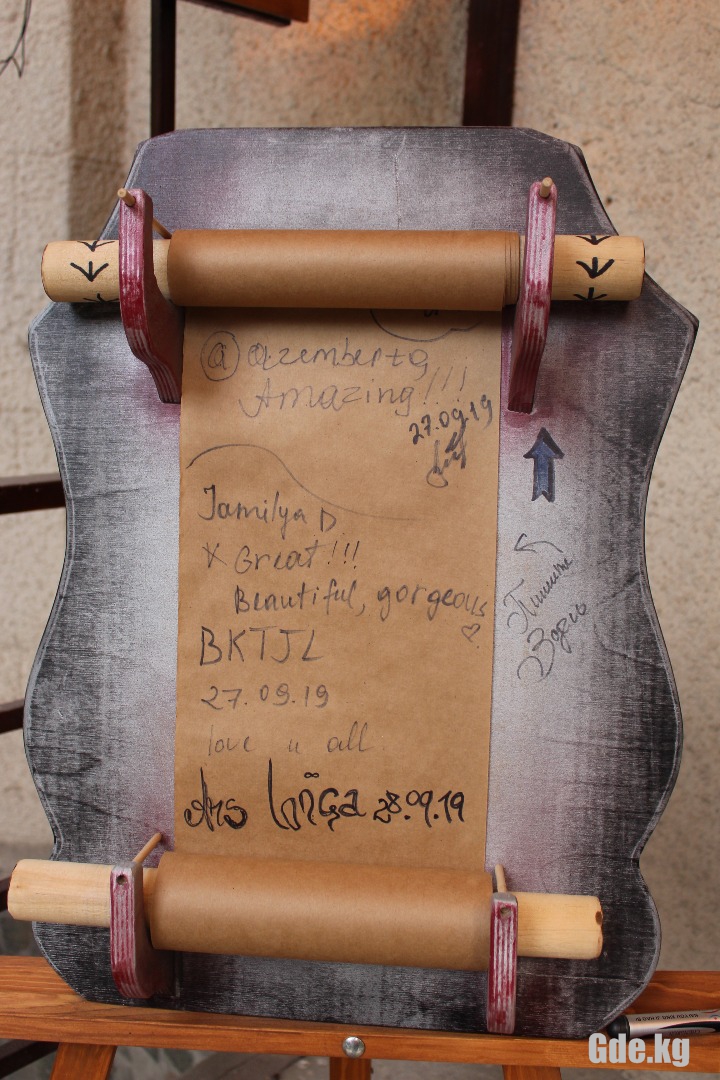 @azemberta
Amazing!!!
27.09.19
Jamilya D
x Great!!!
Beautiful, gorgeous
BKTJL
27.09.19
love u all
28.09.19
Пишите
Здесь
Gde.kg